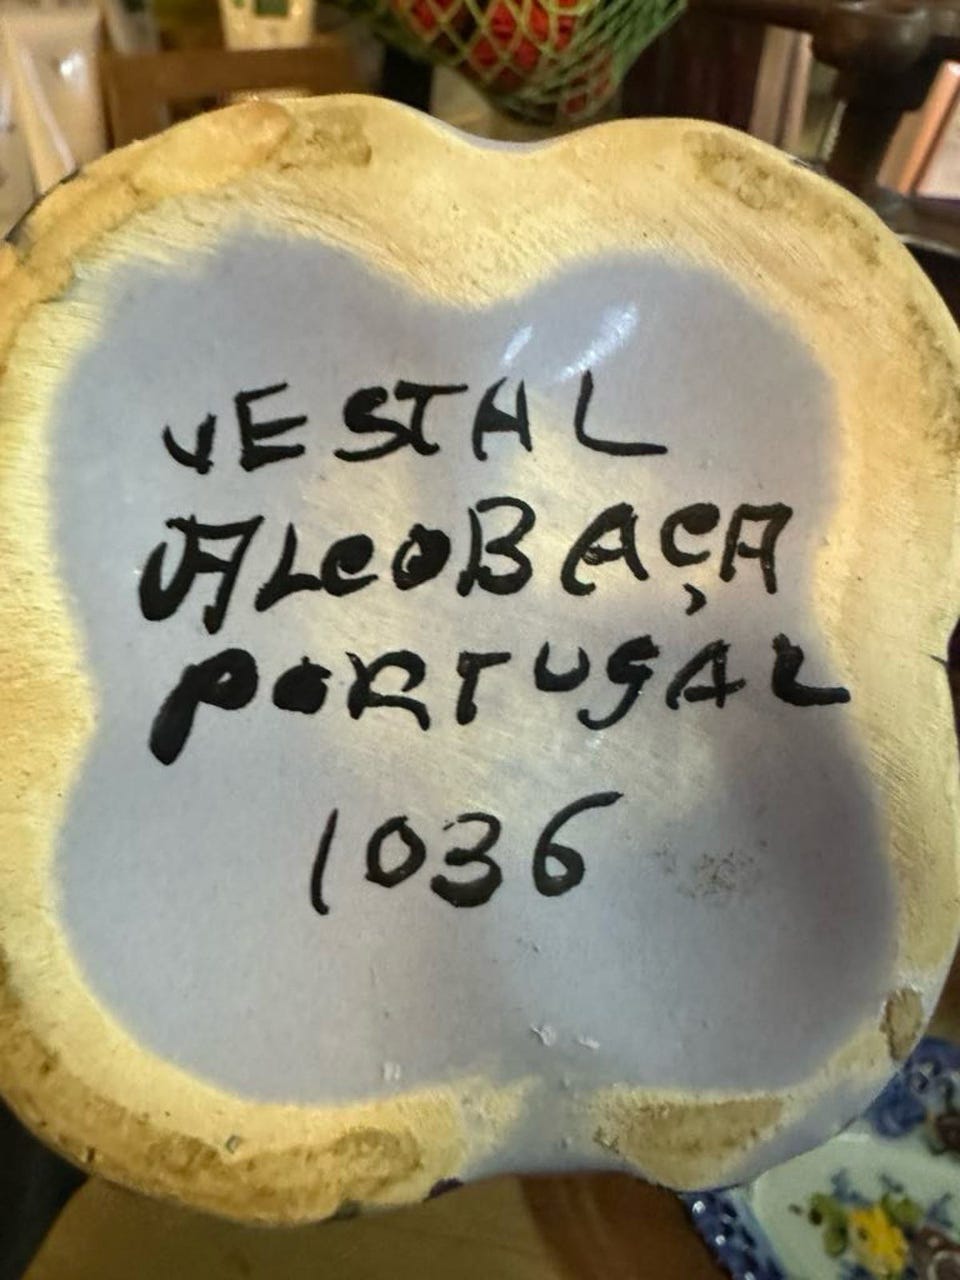 VESTAL
ALCOBAÇA
PORTUGAL
1036